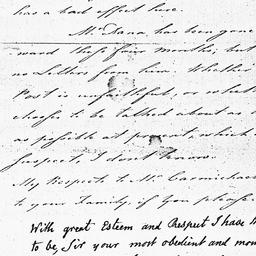 has a bad effect here.
Mr. Dana has been gone
ward these four months; but
no Letters from him. Whether
Post is unfaithful, or whether
chooses to be talked about as little
as possible at present, which
suspect, I don't know.
My Respects to Mr. Carmichael
to your Family, if you please.
With great Esteem and Respect I have
to be, Sir your most obedient and